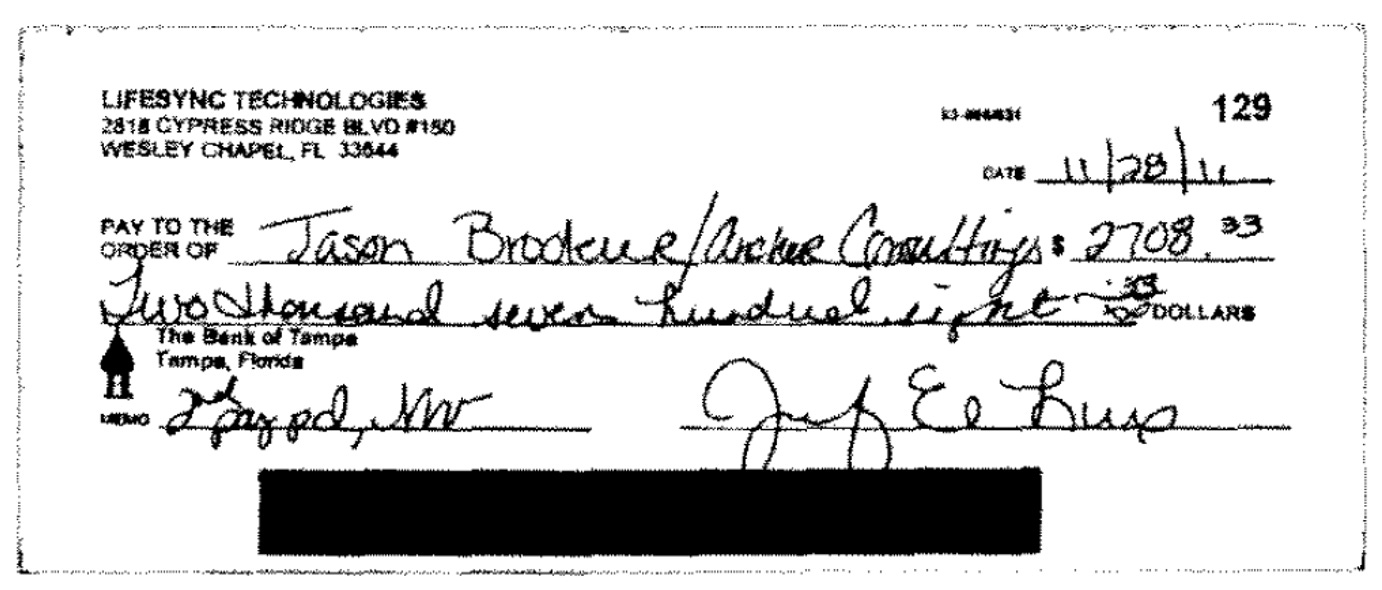 LIFESYNC TECHNOLOGIES
2818 CYPRESS RIDGE BLVD #150
WESLEY CHAPEL, FL 33544
129
DATE 11/28/11
PAY TO THE
ORDER OF Jason / Consulting $ 2708.33
Two thousand seven hundred eight 33 DOLLARS
The Bank of Tampa
Tampa, Florida
MEMO 2nd pay pd, Nov